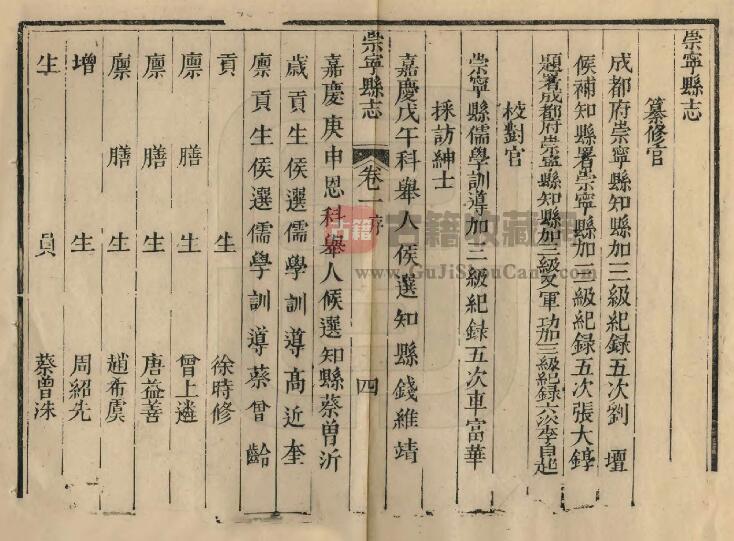 崇寧縣志
纂修官
成都府崇寧縣知縣加三級紀録五次劉 壇
候補知縣署崇寧縣加三級紀録五次張大錞
題署成都府崇寧縣知縣加三級又軍功加三級紀録六次李自
校對官
崇寧縣儒學訓導加三級紀録五次車富華
採訪紳士
嘉慶戊午科舉人候選知縣錢維靖
崇寧縣志 卷一 序 四
嘉慶庚申恩科舉人候選知縣蔡曾沂
歲貢生侯選儒學訓導高近奎
廩貢生侯選儒學訓導蔡曾齡
貢生徐時修
廩膳生曾上遴
廩膳生唐益善
廩膳生趙布虞
增生周紹先
生員蔡曾洙
古籍 古籍收藏网
www.GuJiShouCang.com